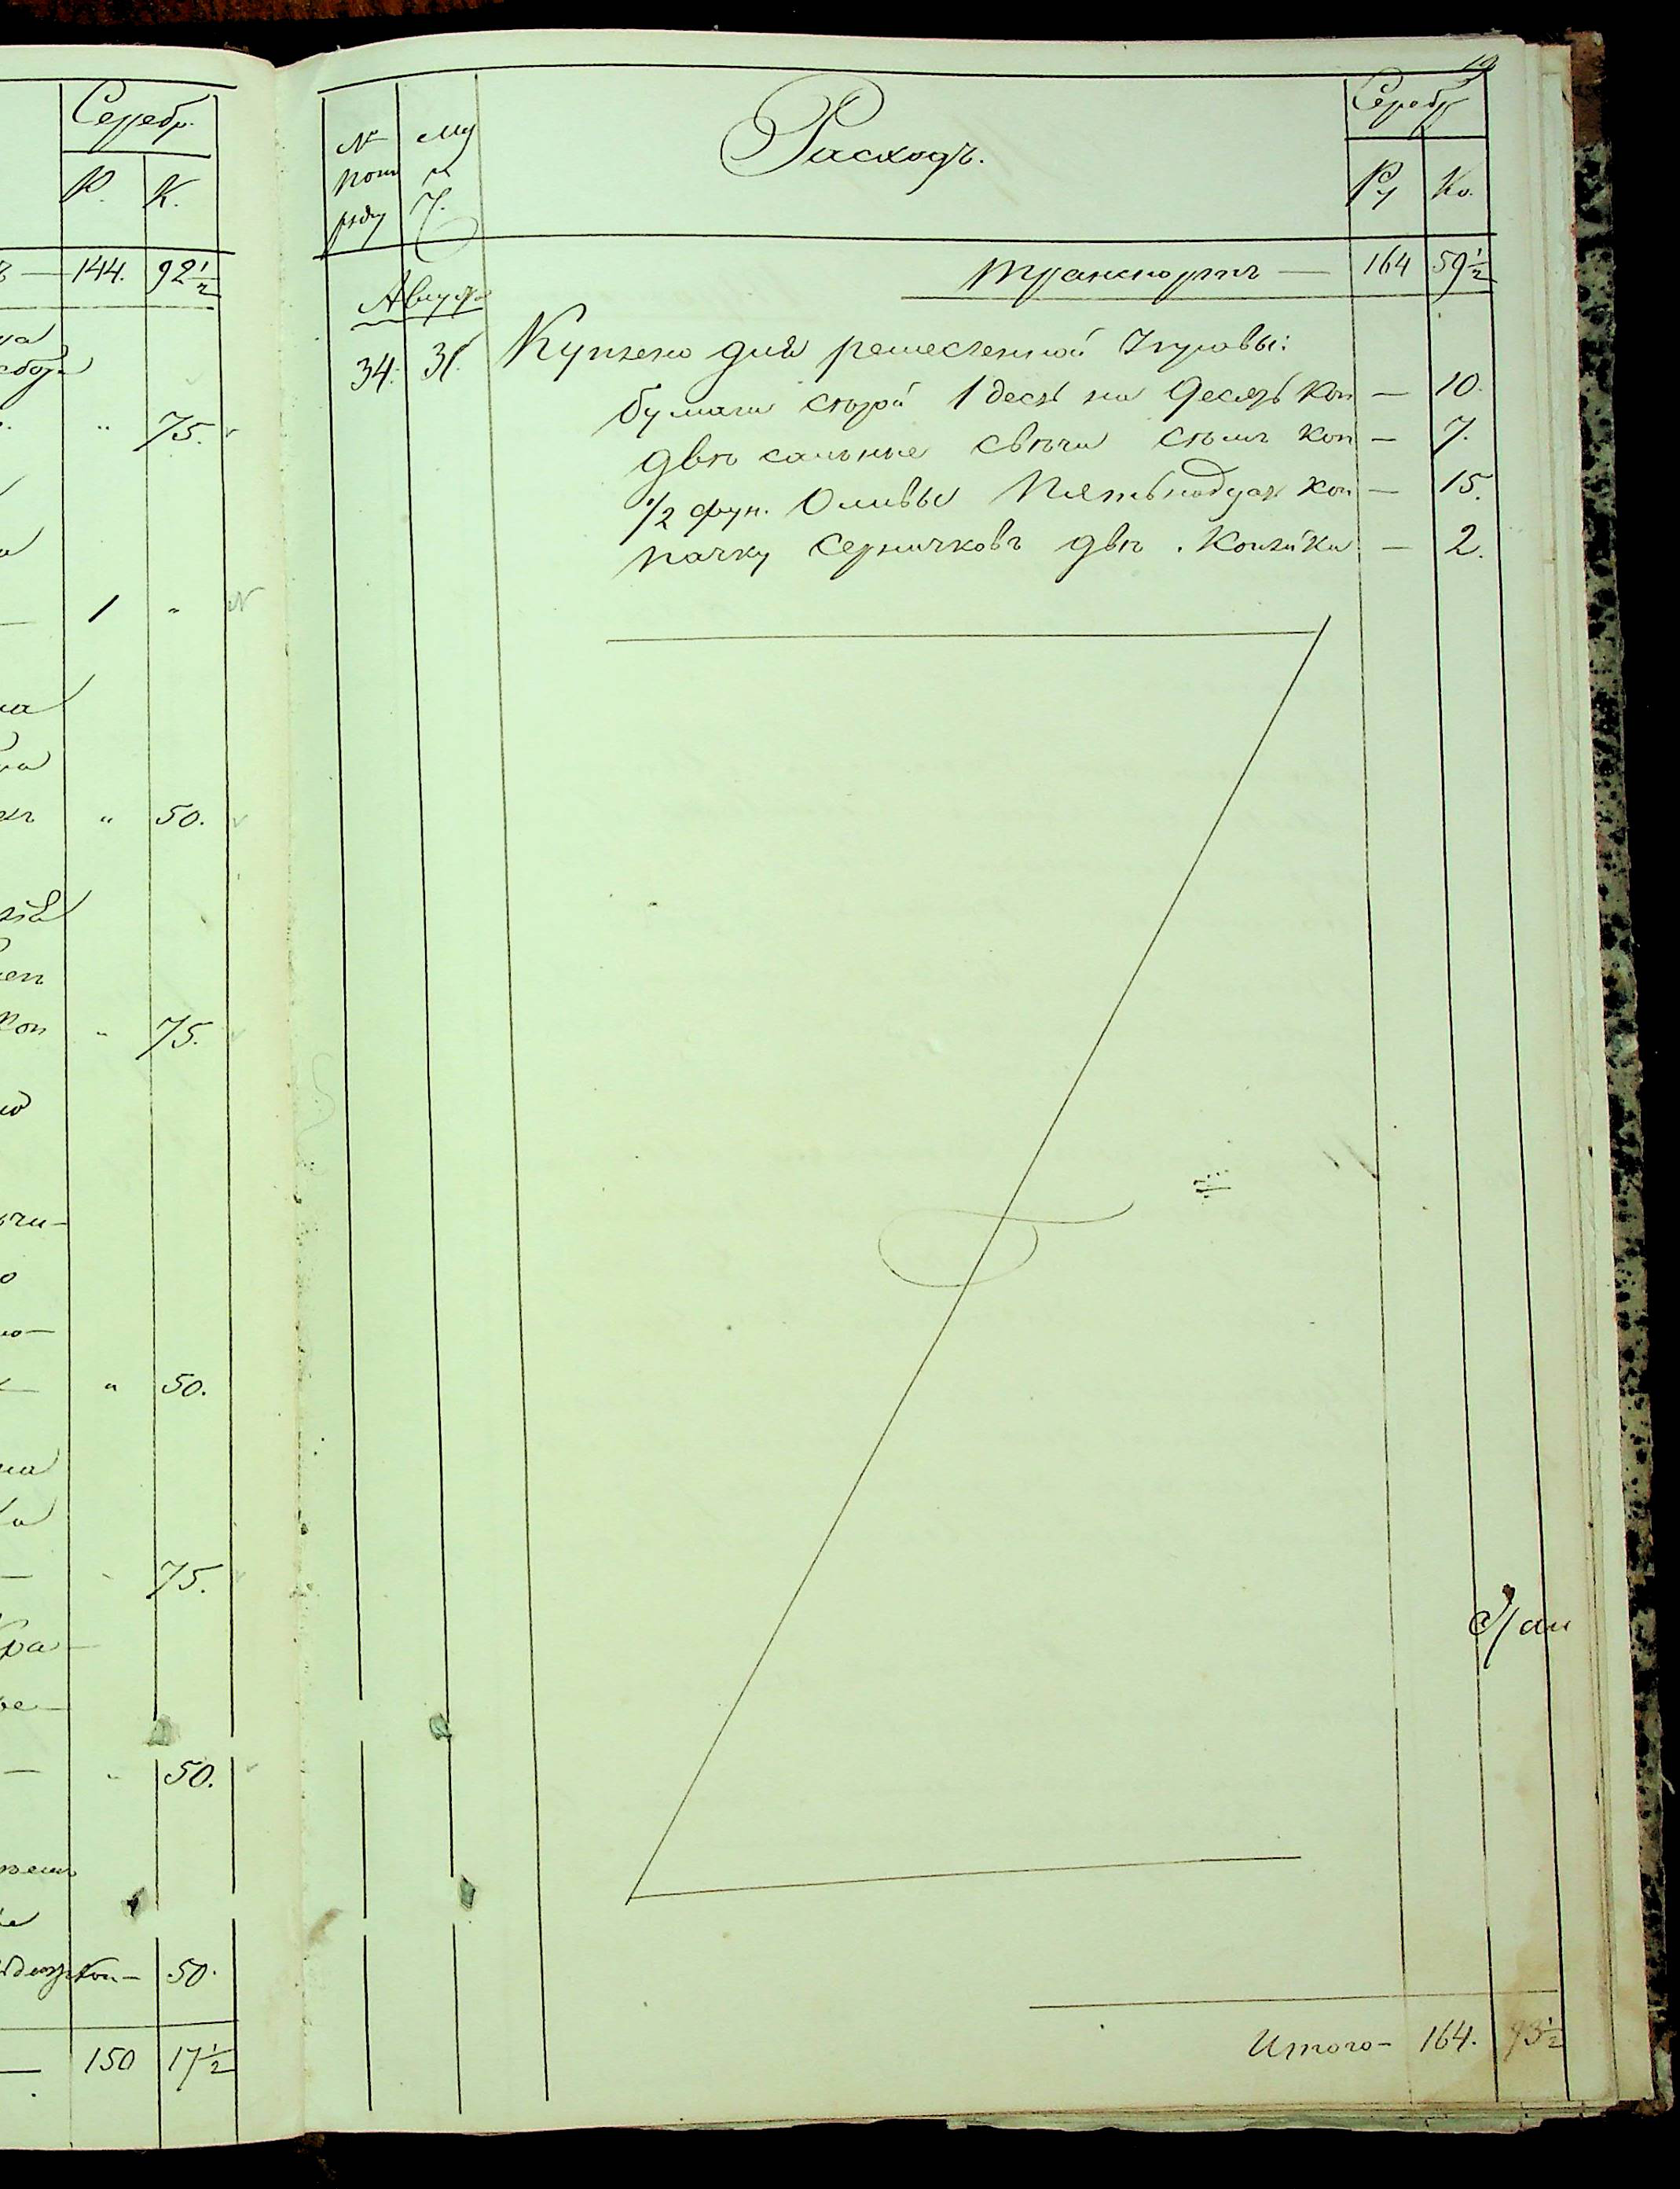 Серебр.
Р. К.
144. 92 1/2
75.
1 "
" 50.
кон " 75.
" 50.
75.
" 50.
кои— 50.
— 150 17 1/2
19
№ Мц
пои и
ряду Ч.
Расходъ.
Серебр
Ру Ко.
транспортъ — 164 59 1/2
Август
34. 31. Куплено для ремесленной Управы:
бумаги сѣрой 1 десть на десять коп — 10.
двѣ сальные свѣчи семь коп — 7.
1/2 фун. Оливы Пятьнадцать коп — 15.
пачку Серничковъ двѣ копѣйки — 2.
Итого— 164. 93 1/2